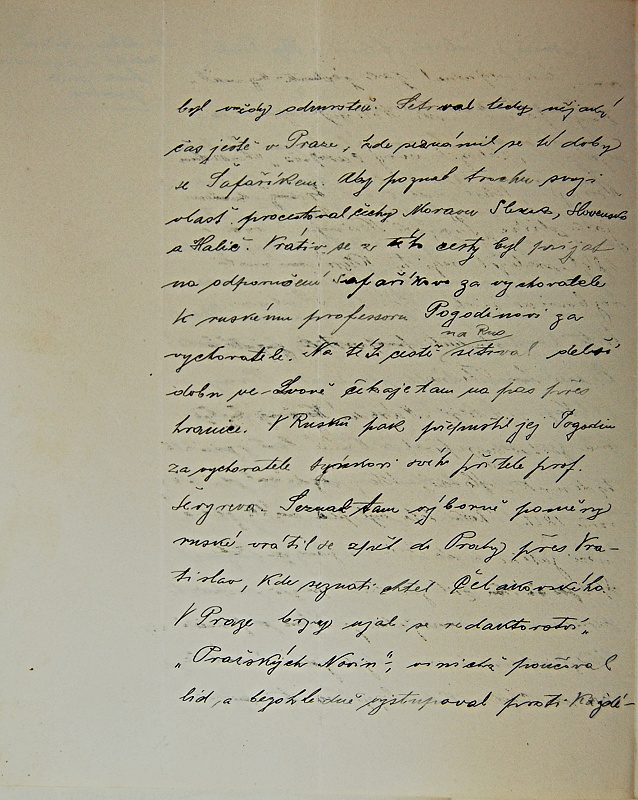 byl vždy odmrštěn. Setrval tedy nějaký
čas ještě v Praze, kde seznámil se té doby
se Šafaříkem. Aby poznal trochu svoji
vlasť procestoval Čechy Moravu Slezsko, Slovensko
a Halič. Vrátiv se z této cesty byl přijat
na odporučení Šafaříkovo za vychovatele
k ruskému professoru Pogodinovi za
na Rus
vychovatele. Na této cestě setrval delší
dobu ve Lvově čekaje tam na pas přes
hranice. V Rusku pak, předpustil jej Pogodin
za vychovatele synkovi svého přítele prof.
Ševyreva. Seznal tam výborně poměry
ruské vrátil se zpět do Prahy přes Vra-
tislav, kde seznati chtěl Čelakovského.
V Praze brzy ujal se redaktorství
„Pražských Novin", v nichž poučoval
lid, a bezohledně vystupoval proti každé-